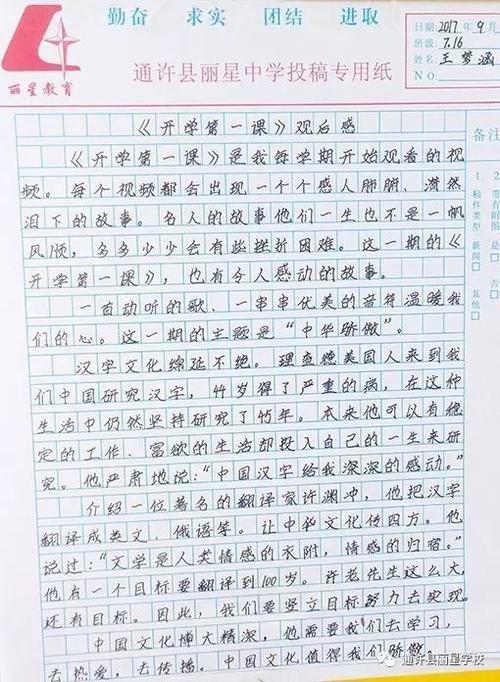 勤奋 求实 团结 进取
日期:2017年9月
班级:7.16
姓名 王梦涵
NO.
丽星教育
通许县丽星中学投稿专用纸
备注
《开学第一课》观后感
《开学第一课》是我每学期开始观看的视
频。每个视频都会出现一个个感人肺腑、潸然
泪下的故事。名人的故事他们一生也不是一帆
风顺,多多少少会有些挫折困难。这一期的《
开学第一课》,也有令人感动的故事。
一首动听的歌、一串串优美的音符温暖我
们的心。这一期的主题是“中华骄傲”。
汉字文化绵延不绝。理查德美国人来到我
们中国研究汉字,44岁得了严重的病,在这种
生活中仍然坚持研究了45年。本来他可以有稳
定的工作、富欲的生活却投入自己的一生来研
究。他严肃地说:“中国汉字给我深深的感动。”
介绍一位著名的翻译家许渊冲,他把汉字
翻译成英文、俄语等。让中华文化传四方。他
说过:“文学是人类情感的衣附,情感的归宿。”
他有一个目标要翻译到100岁。许老先生这么大,
还有目标。因此,我们要竖立目标努力去实现。
中国文化博大精深,他需要我们去学习,
去热爱,去传播。中国文化值得我们骄傲。
1.稿件类型 新闻□ 其他□
2.带有附图 是□ 否□
通许县丽星学校